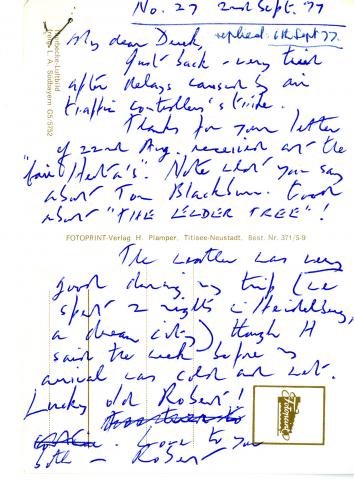 No. 27 2nd Sept. '77
My dear Derek, replied 6th Sept 77.
Just back - very tired
after delays caused by air
traffic controllers strike.
Thanks for your letter
of 22nd Aug. received at the
"fair Herta's". Note what you say
about Tom Blackburn. Good
about "THE ELDER TREE"!
FOTOPRINT-Verlag H. Plamper, Titisee-Neustadt, Best. Nr. 371/5-9
The weather was very
good during my trip (we
spent 2 nights in Heidelberg,
a dream city) though H
said the week before my
arrival was cold and wet.
Lucky old Robert!
Love to you
both - Robert
Fotoprint
L. A. Südbayern G5/5752